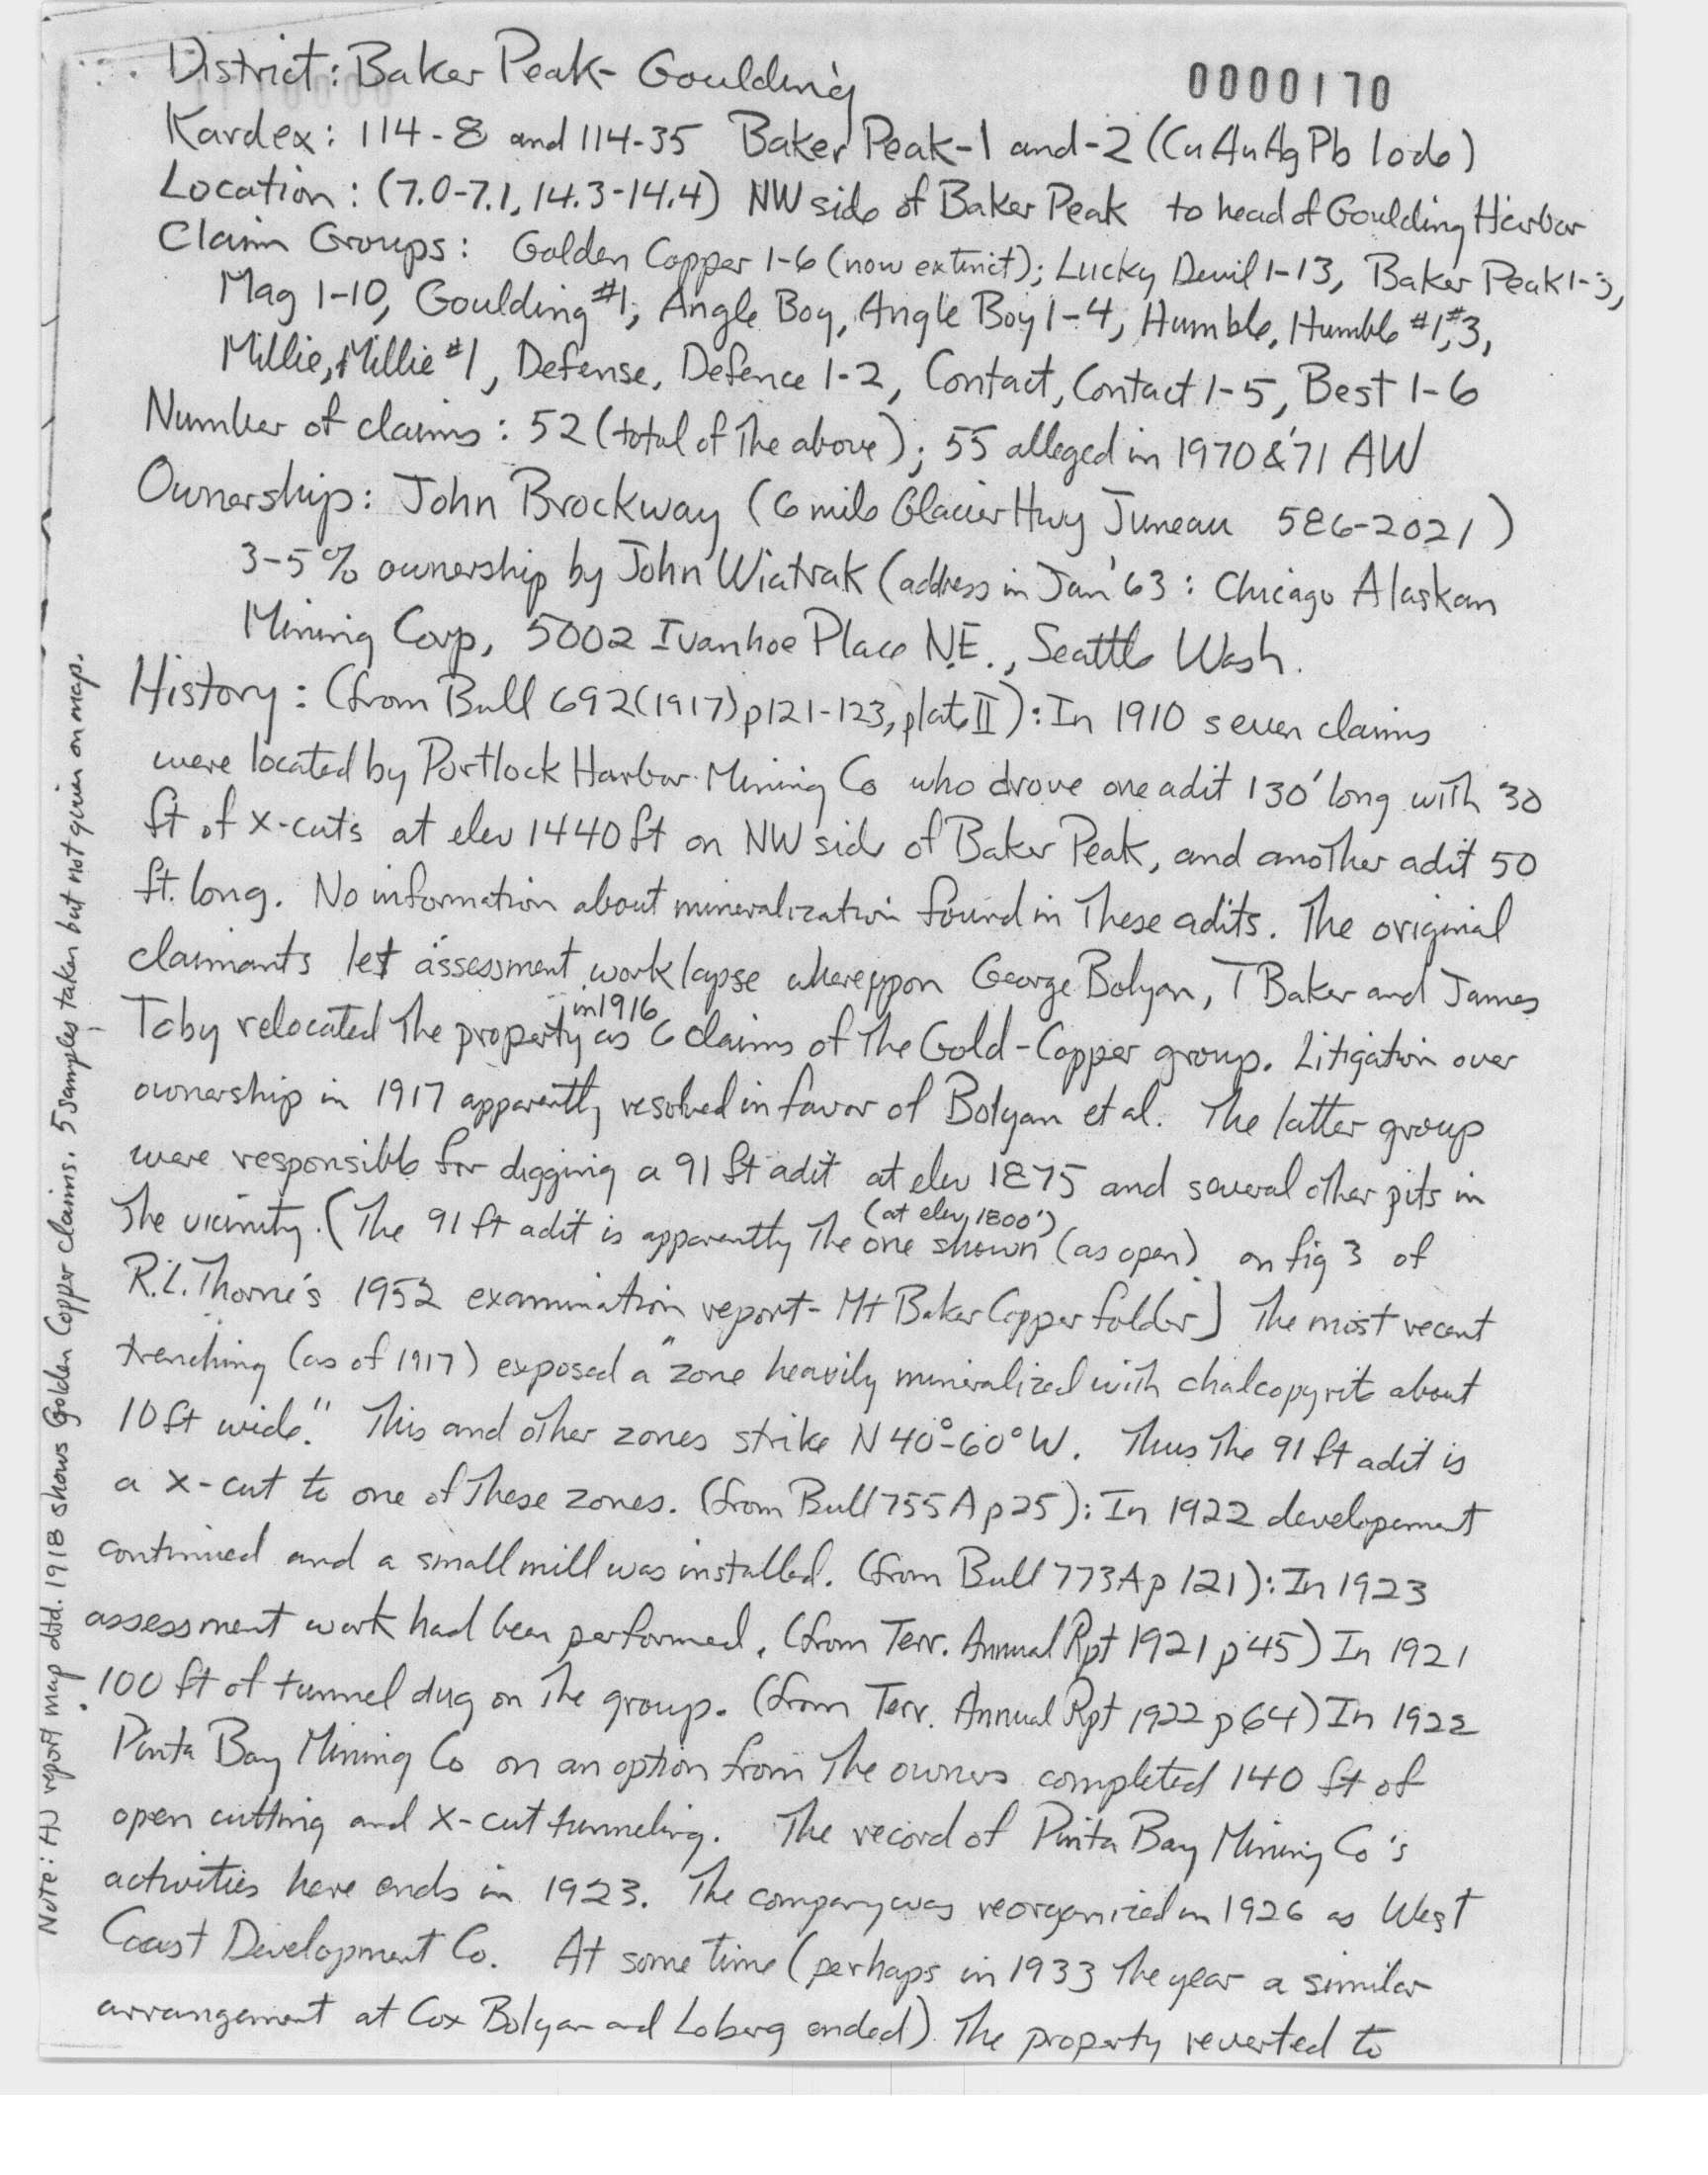 District: Baker Peak- Goulding
0000170
Kardex: 114-8 and 114-35 Baker Peak-1 and-2 (Cu Au Ag Pb lode)
Location: (7.0-7.1, 14.3-14.4) NW side of Baker Peak to head of Goulding Harbor
Claim Groups: Golden Copper 1-6 (now extinct); Lucky Devil 1-13, Baker Peak 1-3,
Mag 1-10, Goulding #1, Angle Boy, Angle Boy 1-4, Humble, Humble #1, #3,
Millie, Millie #1, Defense, Defence 1-2, Contact, Contact 1-5, Best 1-6
Number of claims: 52 (total of the above); 55 alleged in 1970 & '71 AW
Ownership: John Brockway (6 mile Glacier Hwy Juneau 586-2021)
3-5% ownership by John Wiatrak (address in Jan '63: Chicago Alaskan
Mining Corp, 5002 Ivanhoe Place N.E., Seattle Wash.
History: (from Bull 692 (1917) p121-123, plate II): In 1910 seven claims
were located by Portlock Harbor Mining Co who drove one adit 130' long with 30
ft of x-cuts at elev 1440 ft on NW side of Baker Peak, and another adit 50
ft. long. No information about mineralization found in these adits. The original
claimants let assessment work lapse whereupon George Bolyan, T Baker and James
Toby relocated the property in 1916 as 6 claims of the Gold-Copper group. Litigation over
ownership in 1917 apparently resolved in favor of Bolyan et al. The latter group
were responsible for digging a 91 ft adit at elev 1875 and several other pits in
the vicinity. (The 91 ft adit is apparently the one shown (at elev, 1800') (as open) on fig 3 of
R.L. Thorne's 1952 examination report- Mt Baker Copper folder) The most recent
trenching (as of 1917) exposed a "zone heavily mineralized with chalcopyrite about
10 ft wide." This and other zones strike N 40°-60° W. Thus the 91 ft adit is
a x-cut to one of these zones. (from Bull 755A p25): In 1922 developement
continued and a small mill was installed. (from Bull 773A p 121): In 1923
assessment work had been performed. (from Terr. Annual Rpt 1921 p 45) In 1921
100 ft of tunnel dug on the group. (from Terr. Annual Rpt 1922 p 64) In 1922
Pinta Bay Mining Co on an option from the owners completed 140 ft of
open cutting and x-cut tunneling. The record of Pinta Bay Mining Co's
activities here ends in 1923. The company was reorganized in 1926 as West
Coast Development Co. At some time (perhaps in 1933 the year a similar
arrangement at Cox Bolyan and Loberg ended) The property reverted to
Note: AJ report map dtd. 1918 shows Golden Copper claims. 5 samples taken but not given on map.